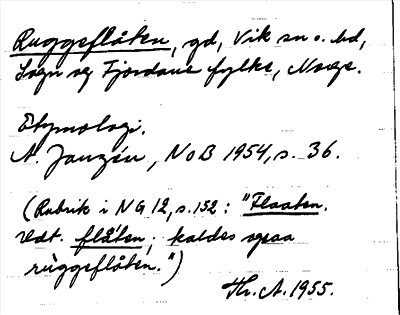 Ruggeflåten, gd, Vik sn o. hd,
Sogn og Fjordane fylke, Norge.
Etymologi.
A. Janzén, NoB 1954, s. 36.
(Rubrik i NG 12, s. 152: "Flaaten.
Udt. flåten; kaldes ogsaa
rùggeflåten.")
Th. A. 1955.